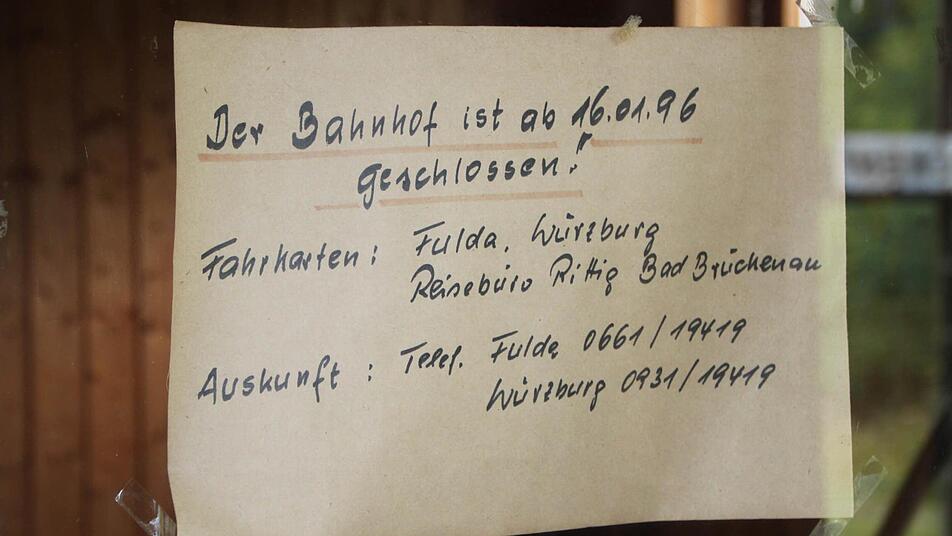 Der Bahnhof ist ab 16.01.96
geschlossen!
Fahrkarten: Fulda, Würzburg
Reisebüro Rittig Bad Brückenau
Auskunft: Telef. Fulda 0661/19419
Würzburg 0931/19419